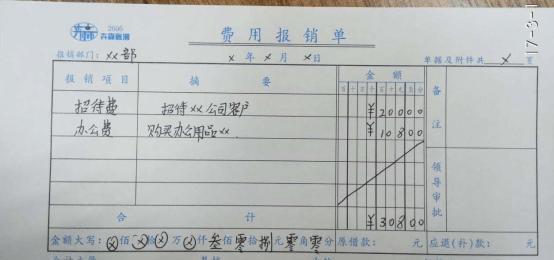 2606
费用报销单
报销部门：xx部 x年x月x日 单据及附件共 x 页
17-3-1
报销项目 摘要 金额 备注
百十万千百十元角分
招待费 招待xx公司客户 ¥20000
办公费 购买办公用品xx. ¥10800
领导审批
合计 ¥30800
金额大写：ⓧ佰ⓧ拾ⓧ万ⓧ仟叁佰零拾捌元零角零分 原借款： 元 应退(补)款： 元